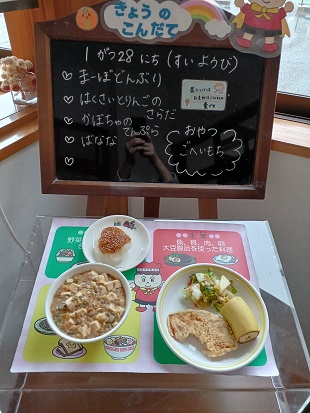 きょうの
こんだて
1がつ28にち(すいようび)
♡まーぼどんぶり
♡はくさいとりんごの
さらだ
♡かぼちゃの
てんぷら
♡ばなな
♡
おやつ
ごへいもち
野菜
魚、貝、肉、卵
大豆製品を使った料理